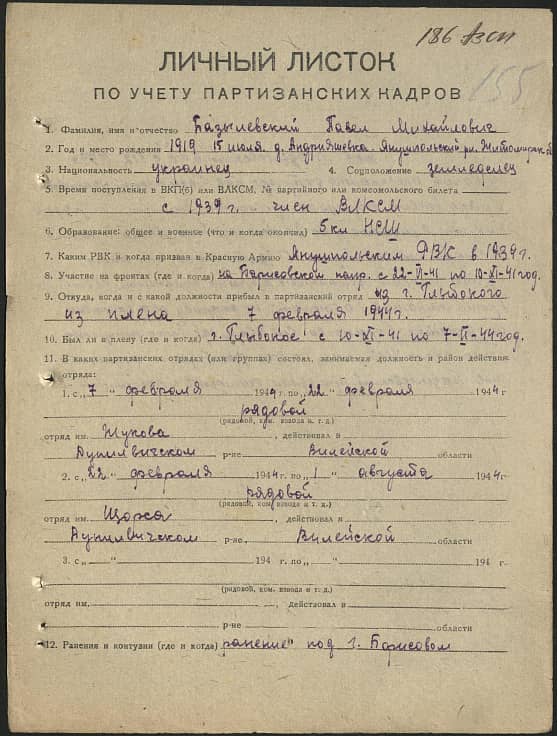 186 Азсп
155
ЛИЧНЫЙ ЛИСТОК
ПО УЧЕТУ ПАРТИЗАНСКИХ КАДРОВ
1. Фамилия, имя и отчество Базылевский Павел Михайлович
2. Год и место рождения 1919 15 июля д. Андрияшевка Янушпольский рн. Житомирск. об
3. Национальность украинец 4. Соцположение земледелец
5. Время поступления в ВКП(б) или ВЛКСМ, № партийного или комсомольского билета
с 1939 г. член ВЛКСМ
6. Образование: общее и военное (что и когда окончил) 5 кл НСШ
7. Каким РВК и когда призван в Красную Армию Янушпольским РВК в 1939 г.
8. Участие на фронтах (где и когда) на Борисовской напр. с 22-VI-41 по 10-XI-41 год.
9. Откуда, когда и с какой должности прибыл в партизанский отряд из г. Глыбокого
из плена 7 февраля 1944 г.
10. Был ли в плену (где и когда) г. Глыбокое с 10-XI-41 по 7-II-44 год.
11. В каких партизанских отрядах (или группах) состоял, занимаемая должность и район действия
отряда:
1. с „7“ февраля 1944 г. по „22“ февраля 1944 г
рядовой
(рядовой, ком. взвода и т. д.)
отряд им. Жукова, действовал в
Дунилвичском р-не Вилейской области
2. с „22“ февраля 1944 г. по „1“ августа 1944 г
рядовой
(рядовой, ком. взвода и т. д.)
отряд им. Щорса, действовал в
Дунилвичском р-не, Вилейской области
3. с „ “ 194 г. по „ “ 194 г
(рядовой, ком. взвода и т. д.)
отряд им., действовал в
р-не области
12. Ранения и контузии (где и когда) ранение под г. Борисовом